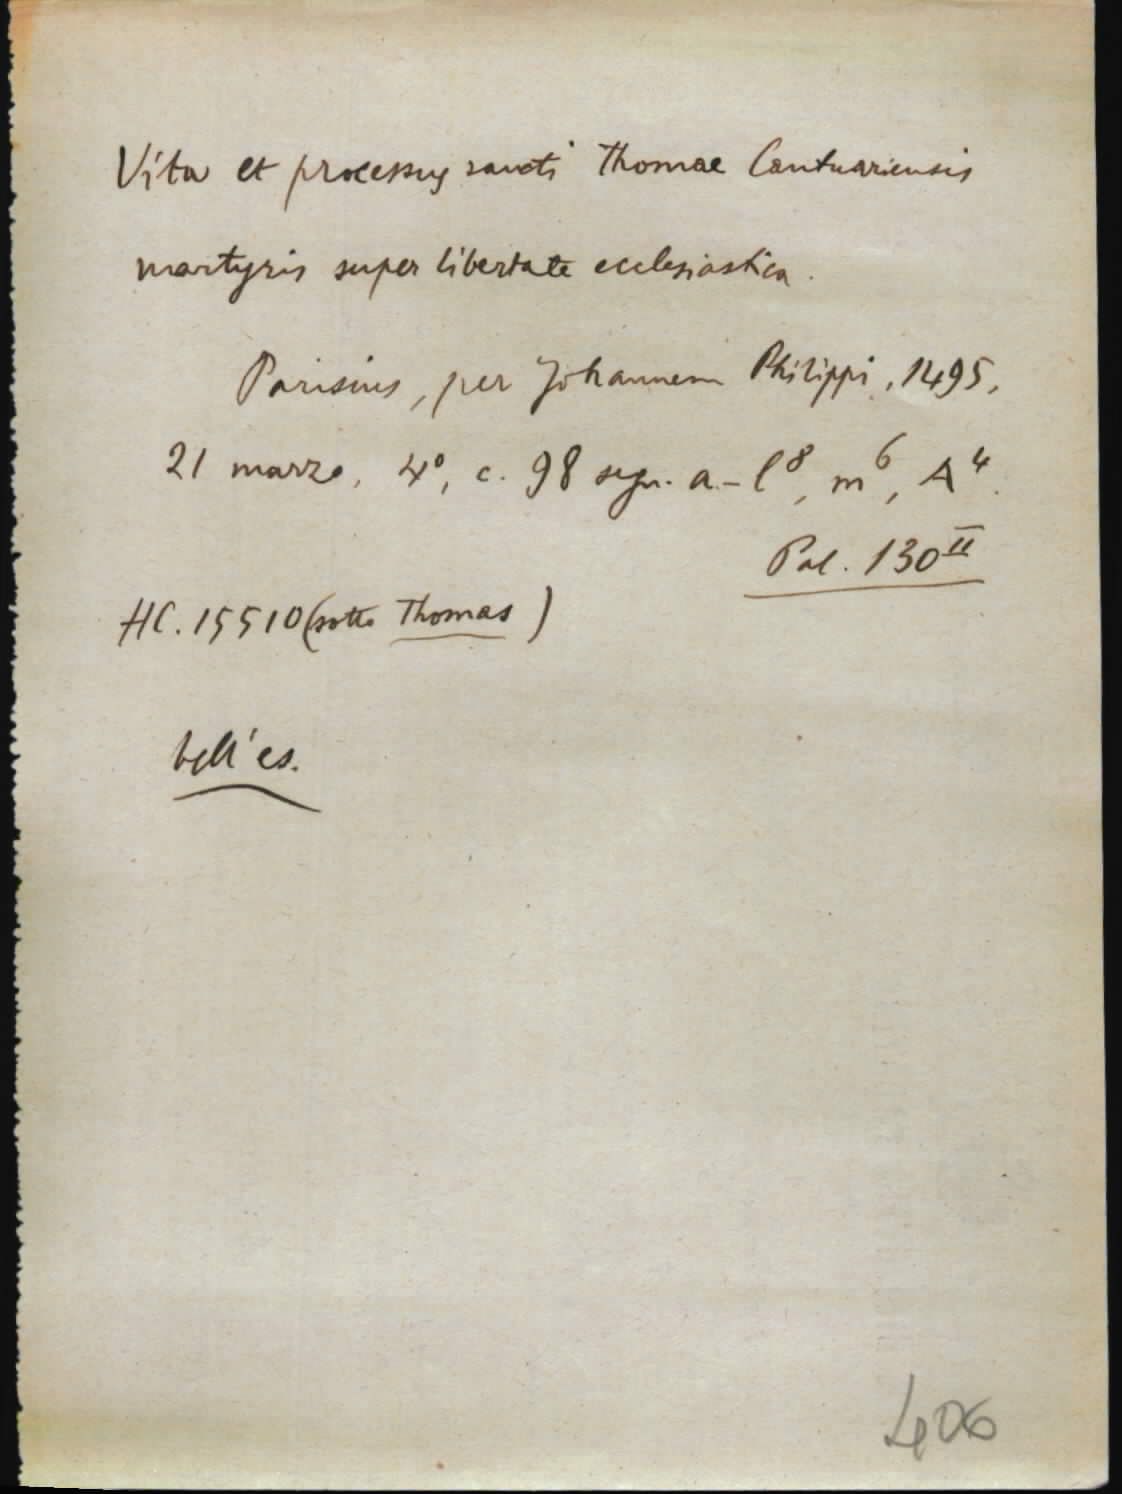 Vita et processus sancti Thomae Cantuariensis
martyris super libertate ecclesiastica.
Parisius, per Johannem Philippi, 1495,
21 marzo, 4°, c. 98 segn. a-l⁸, m⁶, A⁴.
Pal. 130ᴵᴵ
HC. 15510 (sotto Thomas)
bell'es.
406